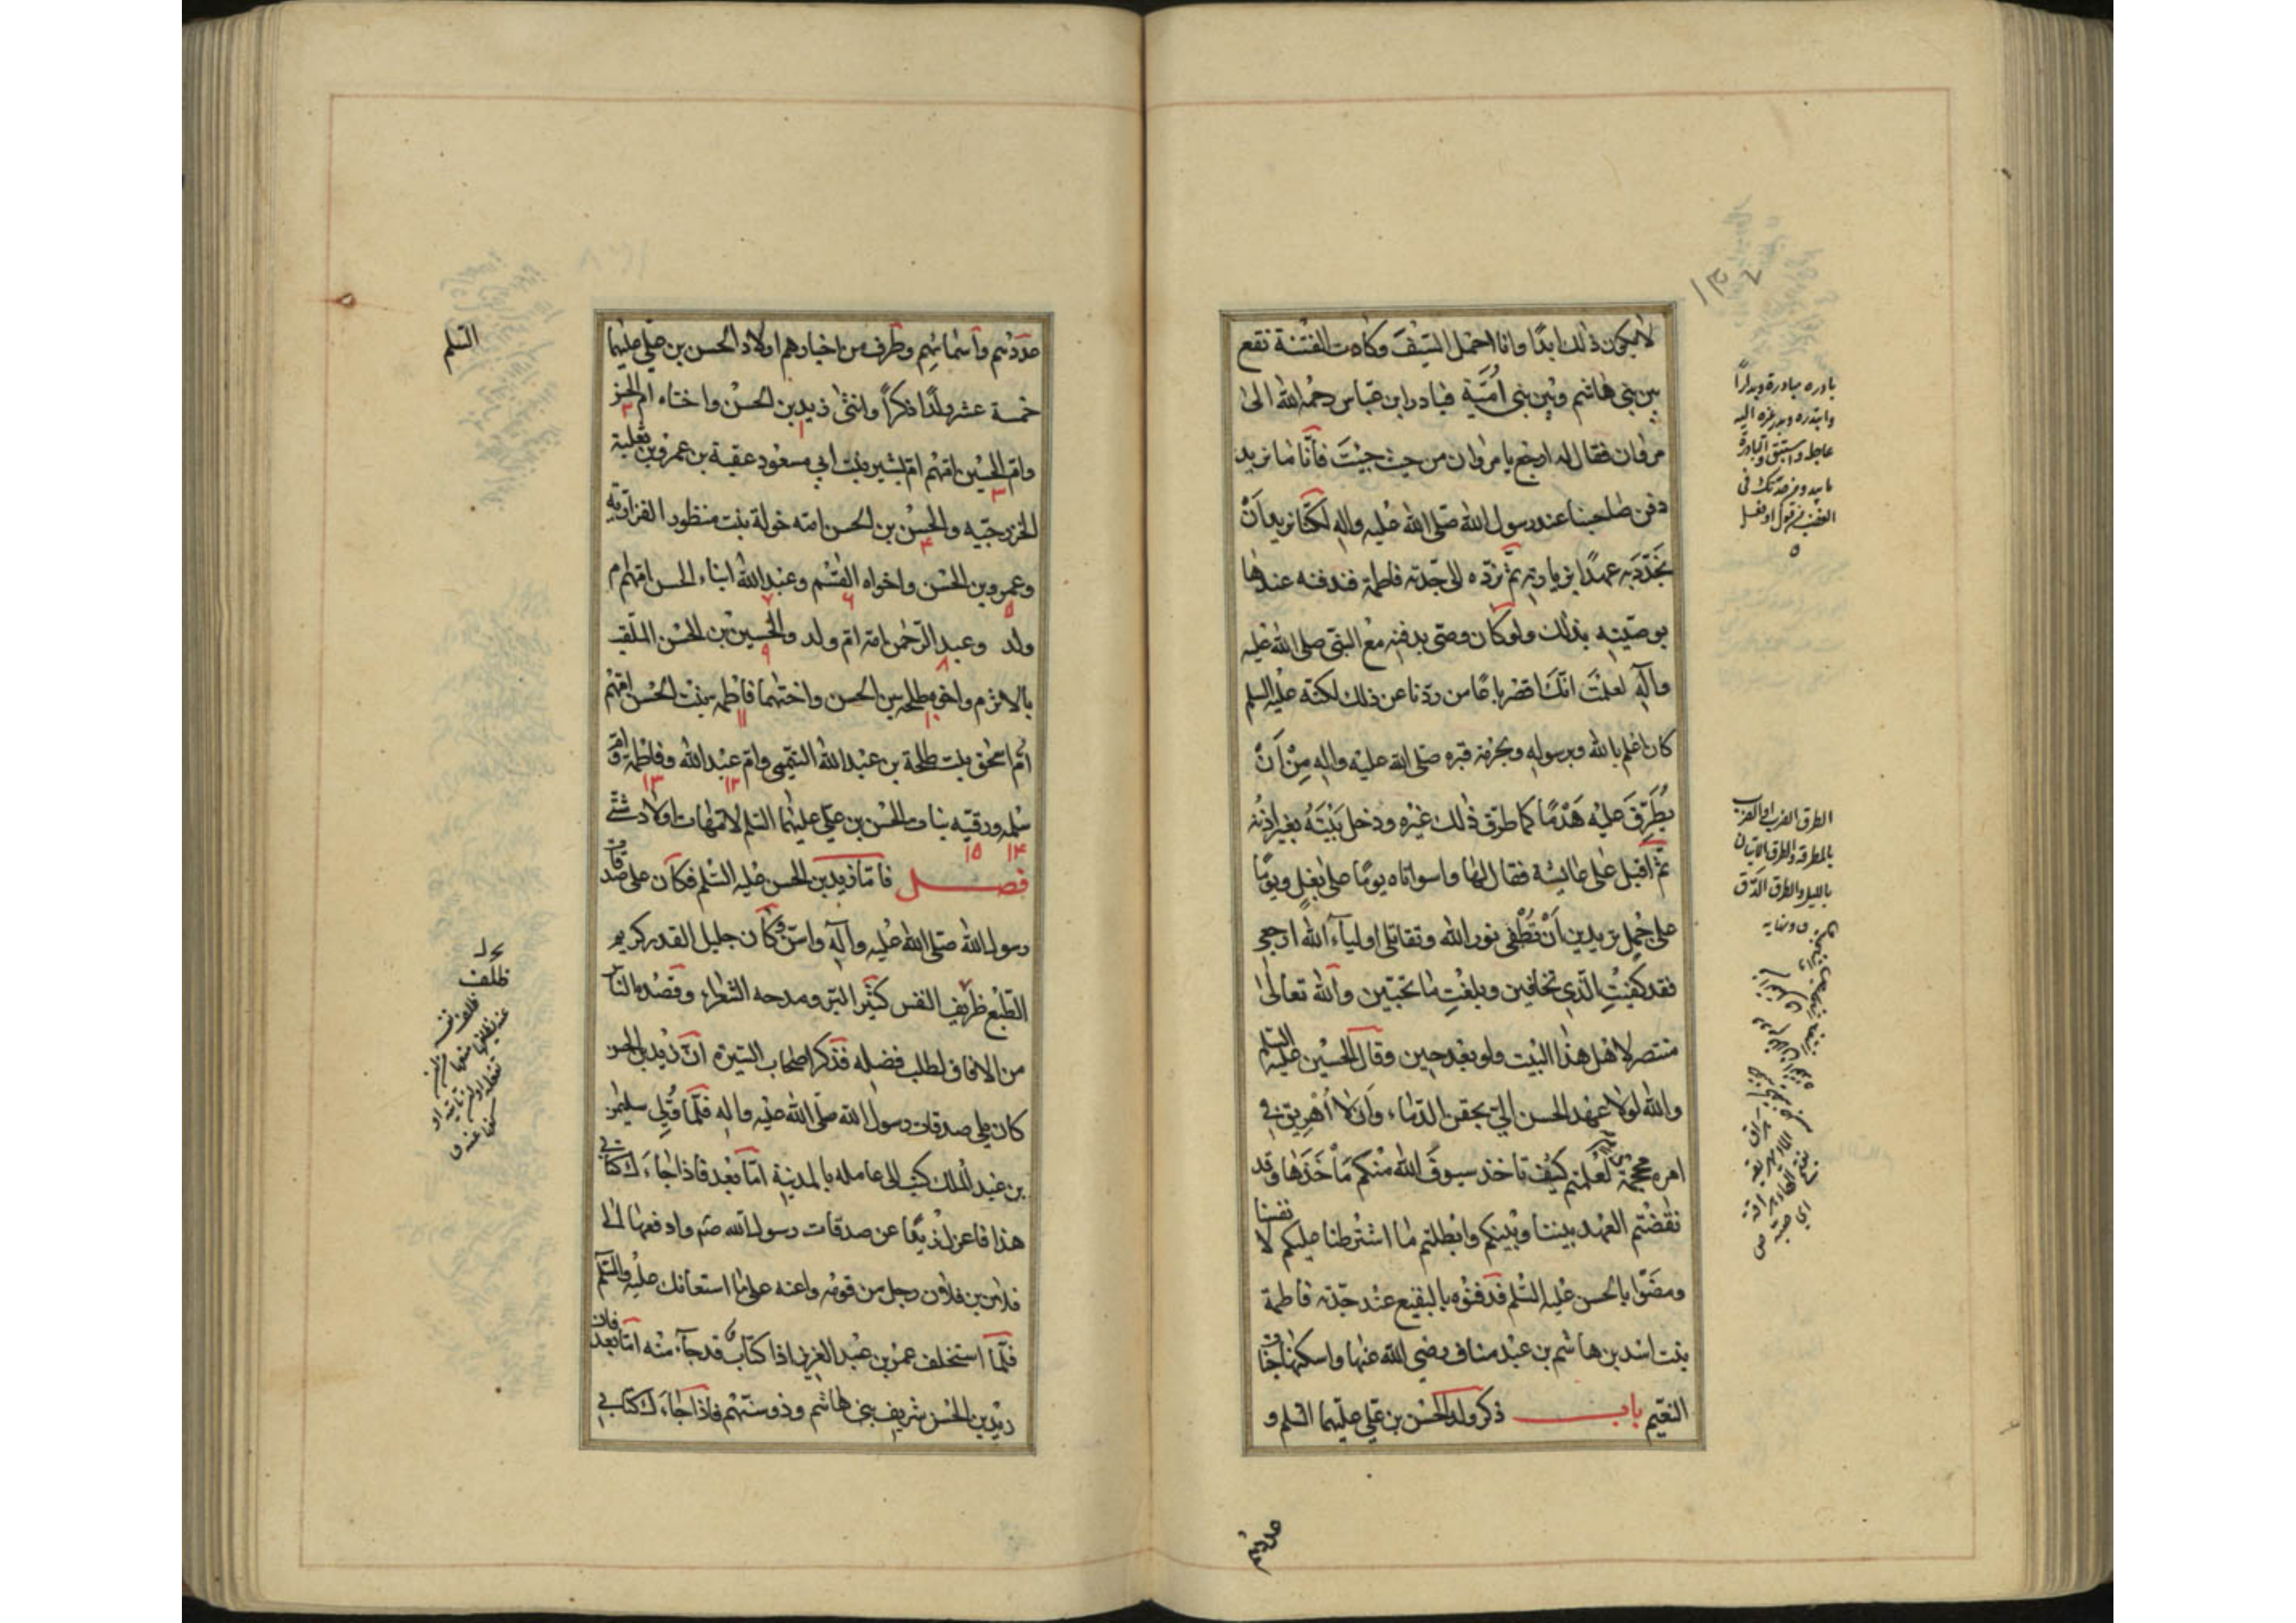 لا یکون ذلك ابدًا وانا احمل السّیف وکادت الفتنة تقع
بین بنی هاشم وبین بنی اُمیّة فبادر ابن عباس رحمه الله الی
مروان فقال له ارجع یا مروان من حیث جئتَ فانّا ما نرید
دفن صاحبنا عند رسول الله صلی الله علیه واله لکنّا نرید اَنْ
نجدّدَ به عهدًا بزیارته ثمّ نردّه الی جدّته فاطمة فندفنه عندها
بوصیّته بذلك ولو کان وصی بدفنه مع النبیّ صلی الله علیه
وآله لعلمتَ انّك اقصر باعًا من ردّنا عن ذلك لکنّه علیه السلم
کان اعلم بالله وبرسوله وبحرمة قبره صلی الله علیه واله مِنْ اَنْ
یُطَرِّقَ علیه هَدْمًا کما طرق ذلك غیره ودخل بَیْتَهُ بغیر اذنه
ثمّ اقبل علی عایشة فقال لها واسواتاه یومًا علی بغلٍ ویومًا
علی جملٍ تریدین اَنْ تُطْفی نور الله وتقاتلی اولیآء الله ارجعی
فقد کفیتِ الّذی تخافین وبلغتِ ما تحبّین والله تعالی
منتصر لاهل هذا البیت ولو بعد حین وقال الحسین علیه السلم
والله لولا عهد الحسن الیّ بحقن الدّماء وان لا اُهریق فی
امره محجمة دم لعلمتم کیف تاخذ سیوف الله منکم مأخذها وقد
نقضتم العهد بیننا وبینکم وابطلتم ما اشترطنا علیکم لانفسنا
ومضوا بالحسن علیه السلم فدفنوه بالبقیع عند جدّته فاطمة
بنت اسد بن هاشم بن عبد مناف رضی الله عنها واسکنها جنات
النعیم باب ذکر ولد الحسن بن علی علیهما السلم و
عددهم
بادره مبادرة وبدارًا
وابتدره وبدر غیره الیه
عاجله واستبق والبادرة
ما یبدو من حدّتك فی
الغضب من قول او فعل
الطرق الضرب او الضرب
بالمطرقة والطرق الاتیان
باللیل والطرق الدّق
عددهم واسمائهم وطرف من اخبارهم اولاد الحسن بن علی علیهما
السّلم
خمسة عشر ولدًا ذکراً وانثی زید بن الحسن واختاه ام الحسن
وام الحسین امّهم ام بشیر بنت ابی مسعود عقبة بن عمرو بن ثعلبة
الخزرجیّه والحسن بن الحسن امّه خولة بنت منظور الفزاریّه
وعمرو بن الحسن واخواه القسم وعبد الله ابناء الحسن امّهم ام
ولد وعبد الرّحمن امّه امّ ولد والحسین بن الحسن الملقّب
بالاثرم واخوه طلحه بن الحسن واختهما فاطمه بنت الحسن امّهم
ام اسحق بنت طلحة بن عبد الله التیمی وام عبد الله وفاطمة وام
سلمه ورقیّه بنات الحسن بن علی علیهما السّلم لامّهات اولاد شتّی
فصل فامّا زید بن الحسن علیه السّلم فکان علی صدقات
رسول الله صلّی الله علیه وآله واسنّ وکان جلیل القدر کریم
الطّبع ظریف النفس کثیر البرّ ومدحه الشعراء وقصده الناس
من الافاق لطلب فضله فذکر اصحاب السّیرة انّ زید بن الحسن
کان یلی صدقات رسول الله صلّی الله علیه واله فلمّا وُلّی سلیمن
بن عبد الملك کتب الی عامله بالمدینة امّا بعد فاذا جاءك کتابی
هذا فاعزل زیدًا عن صدقات رسول الله صلعم وادفعها الی
فلان بن فلان رجل من قومه واعنه علی ما استعانك علیه والسّلم
فلمّا استخلف عمر بن عبد العزیز اذا کتاب قد جآء منه امّا بعد فان
زید بن الحسن شریف بنی هاشم وذو سنّهم فاذا جاءك کتابی